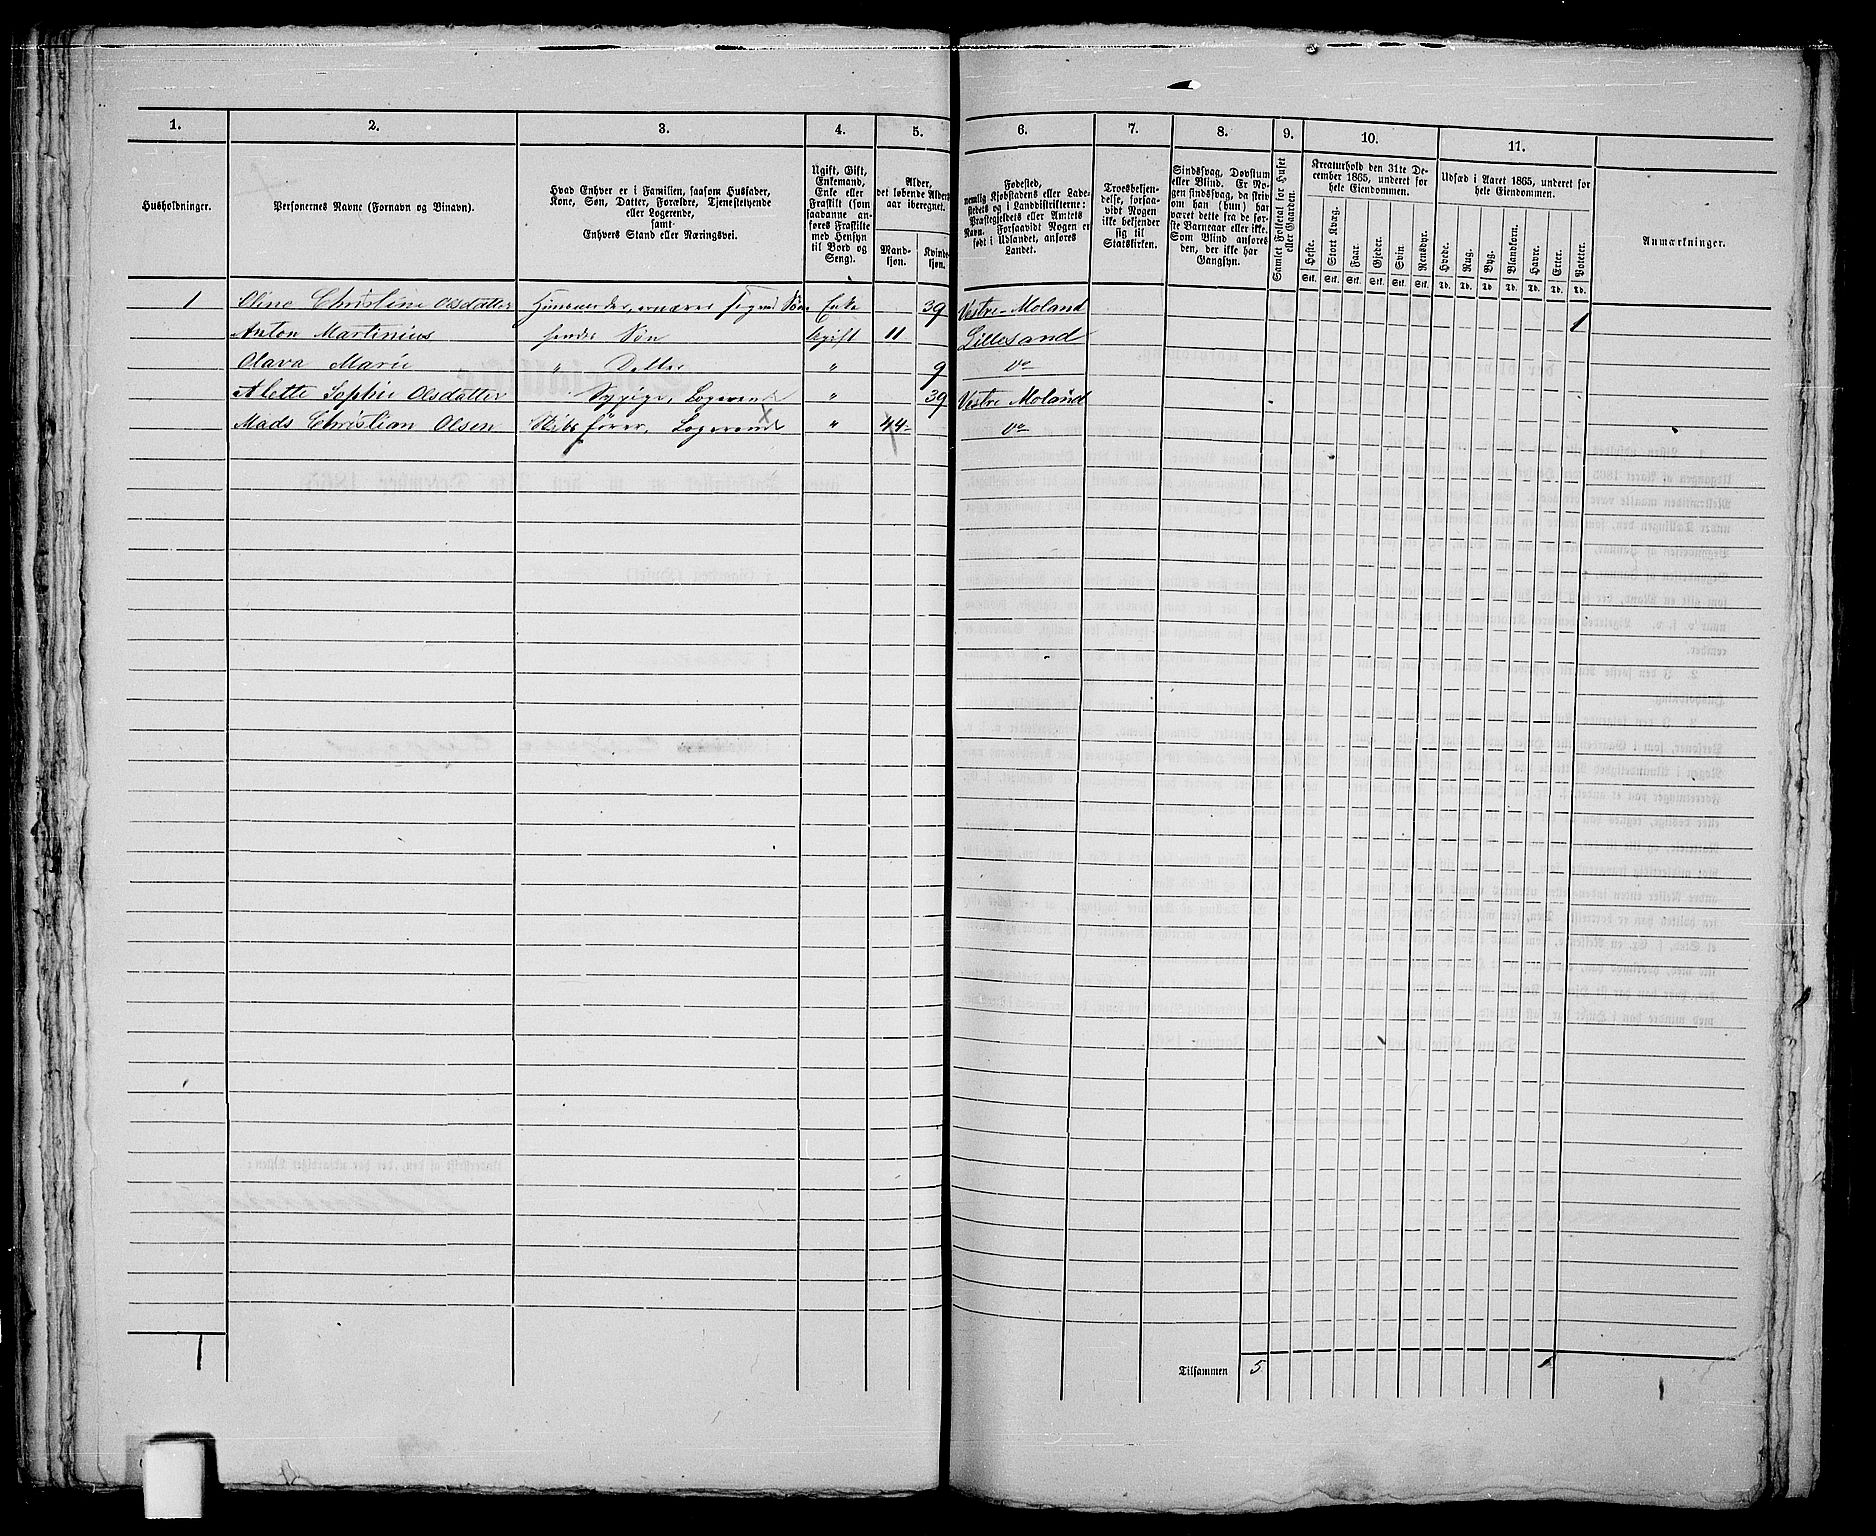 1. 2. 3. 4. 5. 6. 7. 8. 9. 10. 11.
Husholdninger.
Personernes Navne (Fornavn og Binavn).
Hvad Enhver er i Familien, saasom Husfader,
Kone, Søn, Datter, Forældre, Tjenestetyende
eller Logerende,
samt
Enhvers Stand eller Næringsvei.
Ugift, Gift,
Enkemand,
Enke eller
Fraskilt (som
saadanne an-
føres Fraskilte
med Hensyn
til Bord og
Seng).
Alder,
det løbende Alders-
aar iberegnet.
Mand-
kjøn.
Kvinde-
kjøn.
Fødested,
nemlig Kjøbstadens eller Lade-
stedets og i Landdistrikterne:
Præstegjeldets eller Amtets
Navn. Forsaavidt Nogen er
født i Udlandet, anføres
Landet.
Troesbekjen-
delse, forsaa-
vidt Nogen
ikke bekjender
sig til
Statskirken.
Sindssvag, Døvstum
eller Blind. Er No-
gen sindssvag, da skriv
om han (hun) har
været dette fra de før-
ste Barneaar eller ikke.
Som Blind anføres
den, der ikke har
Gangsyn.
Samlet Folketal for Huset
eller Gaarden.
Kreaturhold den 31te De-
cember 1865, underet for
hele Eiendommen.
Heste. Stort Kvæg. Faar. Gjeder. Svin. Rensdyr.
Stk. Stk. Stk. Stk. Stk. Stk.
Udsæd i Aaret 1865, underet for
hele Eiendommen.
Hvede. Rug. Byg. Blandkorn. Havre. Erter. Poteter.
Td. Td. Td. Td. Td. Td. Td.
Anmærkninger.
1 Oline Christine Olsdatter Søn Enke 39 Vestre-Moland 1
Anton Martinius hendes Søn Ugift 11 Lillesand
Olava Marie " Datter " 9 do
Alette Sophie Olsdatter Sypige, Logerende " 39 Vestre Moland
Mads Christian Olsen Skibsfører, Logerende × " 44 do
1 Tilsammen 5 1